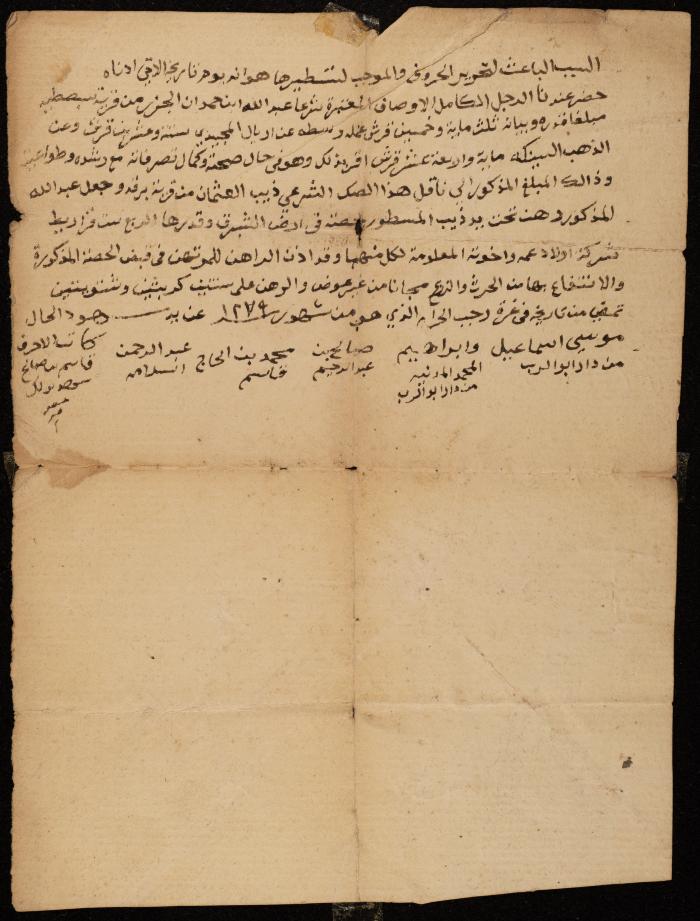 السبب الباعث لتحرير الحروف والموجب لتسطيرها هو انه يوم تاريخ الاتي ادناه
حضر عندنا الرجل الكامل الاوصاف المعتبرة شرعا عبدالله ابن حمدان الجزر من قرية سبصطيه
مبلغا قدره وبيانه ثلث ماية وخمسين قرش عمله رسطه عن اريال المجيدي ستة وعشرين قرش وعن
الذهب البينكه ماية واربعة عشر قرش اقر بذلك وهو في حال صحته وكمال تصرفاته مع رشده وطواعيته
وذالك المبلغ المذكور الى ناقل هذا الصك الشرعي ذيب العثمان من قرية برقه وجعل عبدالله
المذكور رهن تحت يد ذيب المسطور حصته في ارض الشرق وقدرها الربع ست قراريط
شركة اولاد عمه واخوته المعلومة لكل منهما وقد اذن الراهن للمرتهن في قبض الحصة المذكورة
والانتفاع بها من الحرث والزرع مجانا من غير عوض والرهن على سنتين كريتين وشتويتين
تمضي من تاريخه في غرة رجب الحرام الذي هو من شهور سنة ١٢٧٩ عن يد شهود الحال
موسى اسماعيل من دار ابو الرب
وابراهيم المحمد من دار ابو الرب
صالح بن عبدالرحيم
محمد بن الحاج قاسم
عبدالرحمن
كاتب الاحرف
قاسم صالح